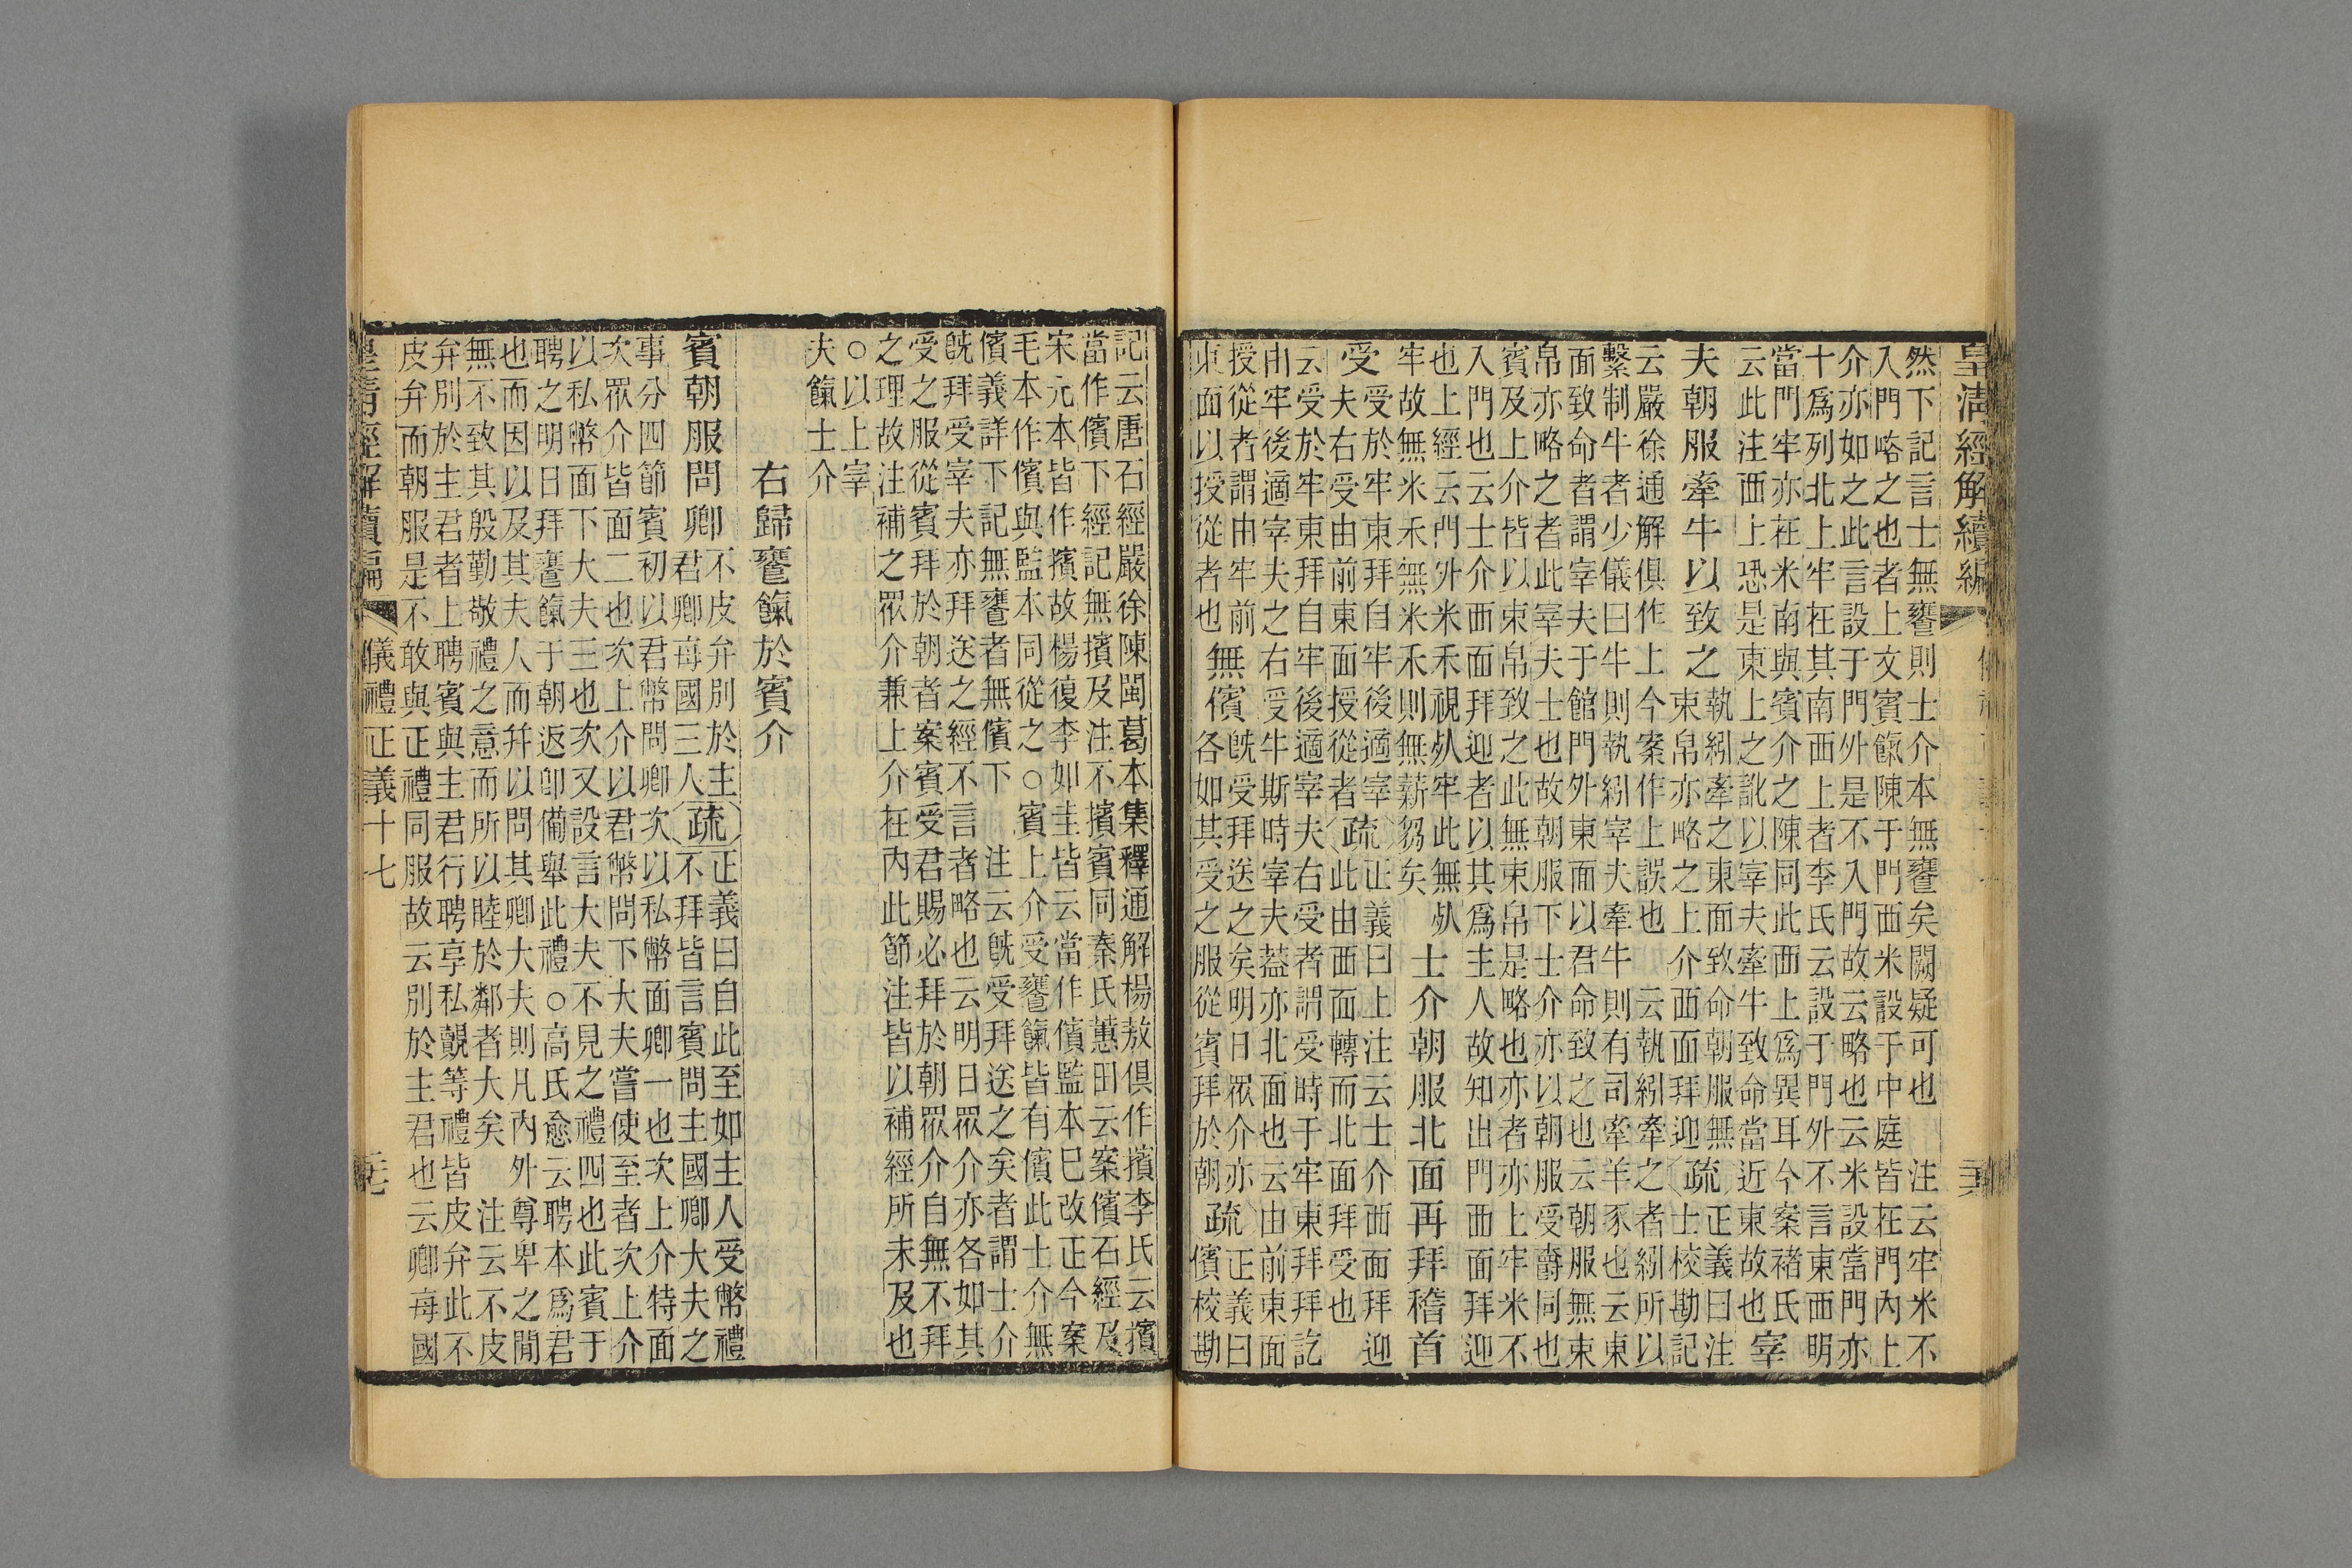 皇清經解續編
然下記言士無饔則士介本無饔矣闕疑可也 注云牢米不
入門略之也者上文賓餼陳于門西米設于中庭皆在門內上
介亦如之此言設于門外是不入門故云略也云米設當門亦
十爲列北上牢在其南西上者李氏云設于門外不言東西明
當門牢亦在米南與賓介之陳同此西上爲異耳今案褚氏
云此注西上恐是東上之訛以宰夫牽牛致命當近東故也 宰
夫朝服牽牛以致之 執紖牽之東面致命朝服無束帛亦略之上介西面拜迎 疏 正義曰注士校勘記
云嚴徐通解俱作上今案作上誤也 云執紖牽之者紖所以
繫制牛者少儀曰牛則執紖宰夫牽牛則有司牽羊豕也云東
面致命者謂宰夫于館門外東面以君命致之也云朝服無束
帛亦略之者此宰夫士也故朝服下士介亦以朝服受爵同也
賓及上介皆以束帛致之此無束帛是略也亦者亦上牢米不
入門也云士介西面拜迎者以其爲主人故知出門西面拜迎
也上經云門外米禾視死牢此無死牢故無米禾無米禾則無薪芻矣 士介朝服北面再拜稽首
受 受於牢東拜自牢後適宰夫右受由前東面授從者 疏 正義曰上注云士介西面拜迎此由西面轉而北面拜受也
云受於牢東拜自牢後適宰夫右受者謂受時于牢東拜拜訖
由牢後適宰夫之右受牛斯時宰夫蓋亦北面也云由前東面
授從者謂由牢前東面以授從者也 無儐 既受拜送之矣明日眾介亦各如其受之服從賓拜於朝 疏 正義曰儐校勘
記云唐石經嚴徐陳閩葛本集釋通解楊敖俱作擯李氏云擯
當作儐下經記無擯及注不擯賓同秦氏蕙田云案儐石經及
宋元本皆作擯故楊復李如圭皆云當作儐監本巳改正今案
毛本作儐與監本同從之○賓上介受饔餼皆有儐此士介無
儐義詳下記無饔者無儐下 注云既受拜送之矣者謂士介
既拜受宰夫亦拜送之經不言者略也云明日眾介亦各如其
受之服從賓拜於朝者案賓受君賜必拜於朝眾介自無不拜
之理故注補之眾介兼上介在內此節注皆以補經所未及也
○以上宰夫餼士介
右歸饔餼於賓介
賓朝服問卿 不皮弁別於主君卿每國三人 疏 正義曰自此至如主人受幣禮不拜皆言賓問主國卿大夫之
事分四節賓初以君幣問卿次以私幣面卿一也次上介特面
次眾介皆面二也次上介以君幣問下大夫嘗使至者次上介
以私幣面下大夫三也次又設言大夫不見之禮四也此賓于
聘之明日拜饔餼于朝返卽備舉此禮○高氏愈云聘本爲君
也而因以及其夫人而幷以問其卿大夫則凡內外尊卑之閒
無不致其殷勤敬禮之意而所以睦於鄰者大矣 注云不皮
弁別於主君者上聘賓與主君行聘享私覿等禮皆皮弁此不
皮弁而朝服是不敢與正禮同服故云別於主君也云卿每國
皇清經解續編 儀禮正義十七